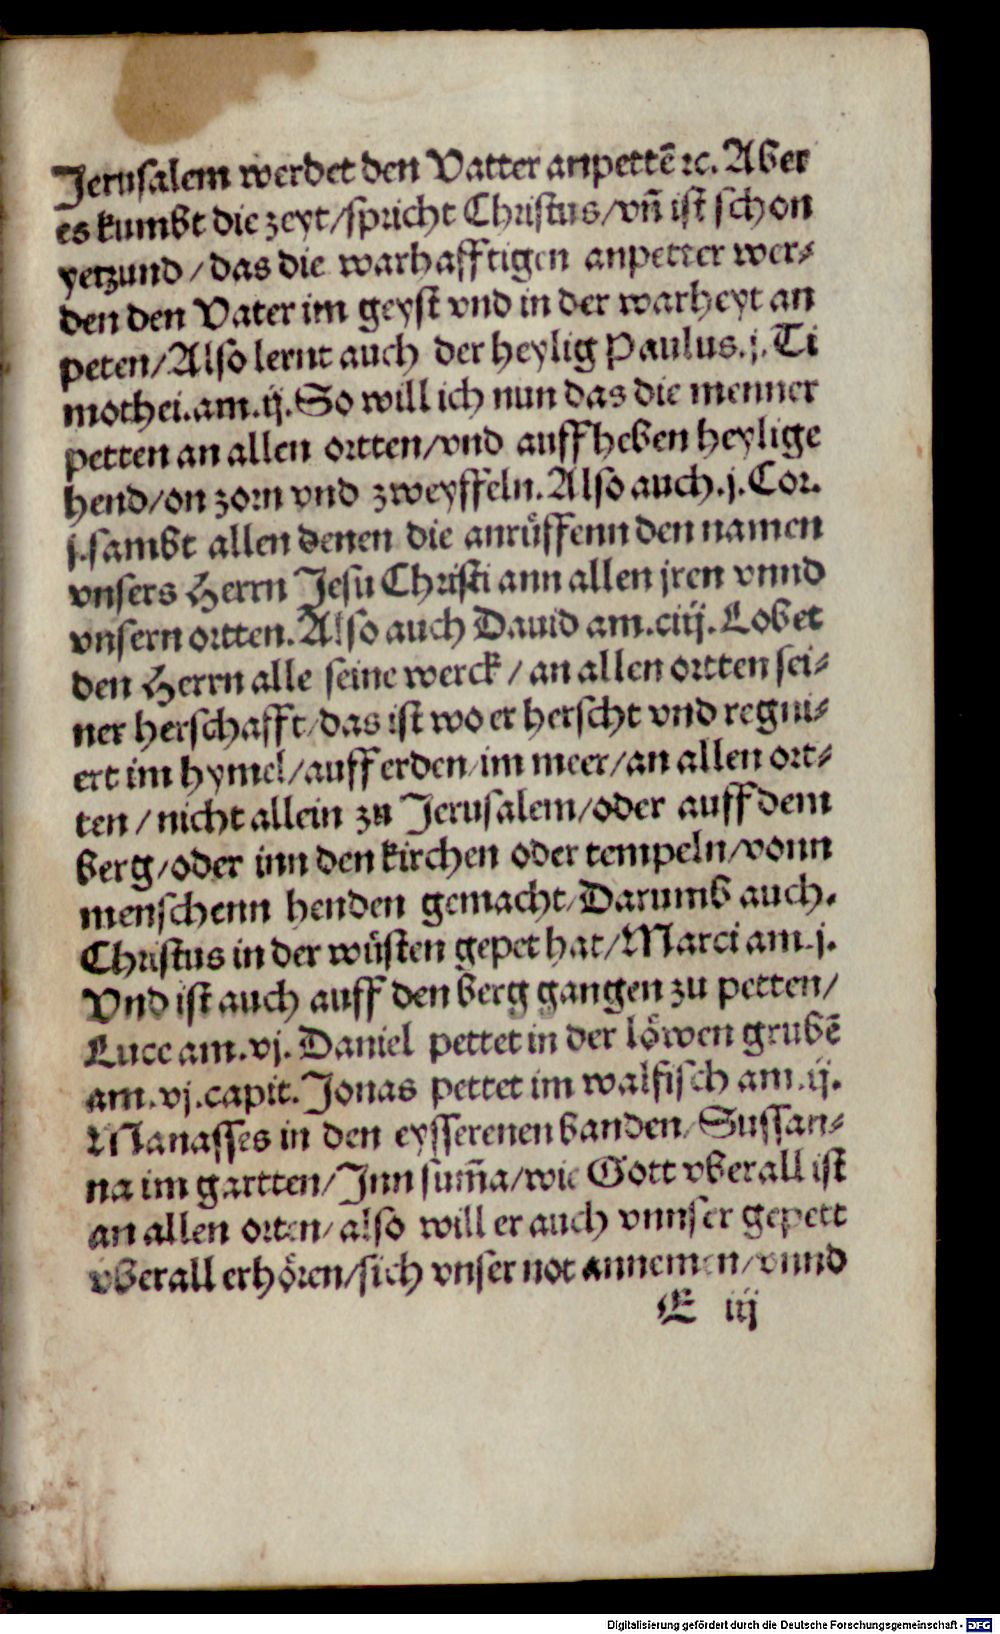 Jerusalem werdet den Vatter anpettē ꝛc. Aber
es kumbt die zeyt/spricht Christus/vn̄ ist schon
yetzund/das die warhafftigen anpetter wer⸗
den den Vater im geyst vnd in der warheyt an
peten/Also lernt auch der heylig Paulus.j.Ti
mothei.am.ij.So will ich nun das die menner
petten an allen ortten/vnd auffheben heylige
hend/on zorn vnd zweyffeln.Also auch.j.Cor.
j.sambt allen denen die anrůffenn den namen
vnsers Herrn Jesu Christi ann allen jren vnnd
vnsern ortten.Also auch Dauid am.ciij.Lobet
den Herrn alle seine werck/an allen ortten sei⸗
ner herschafft/das ist wo er herscht vnd regni⸗
ert im hymel/auff erden/im meer/an allen ort⸗
ten/nicht allein zu Jerusalem/oder auff dem
berg/oder inn den kirchen oder tempeln/vonn
menschenn henden gemacht/Darumb auch.
Christus in der wüsten gepet hat/Marci am.j.
Vnd ist auch auff den berg gangen zu petten/
Luce am.vj.Daniel pettet in der löwen grubē
am.vj.capit.Jonas pettet im walfisch am.ij.
Manasses in den eysserenen banden/Sussan⸗
na im gartten/Jnn sum̄a/wie Gott vberall ist
an allen orten/also will er auch vnnser gepett
vberall erhören/sich vnser not annemen/vnnd
E iij
Digitalisierung gefördert durch die Deutsche Forschungsgemeinschaft - DFG